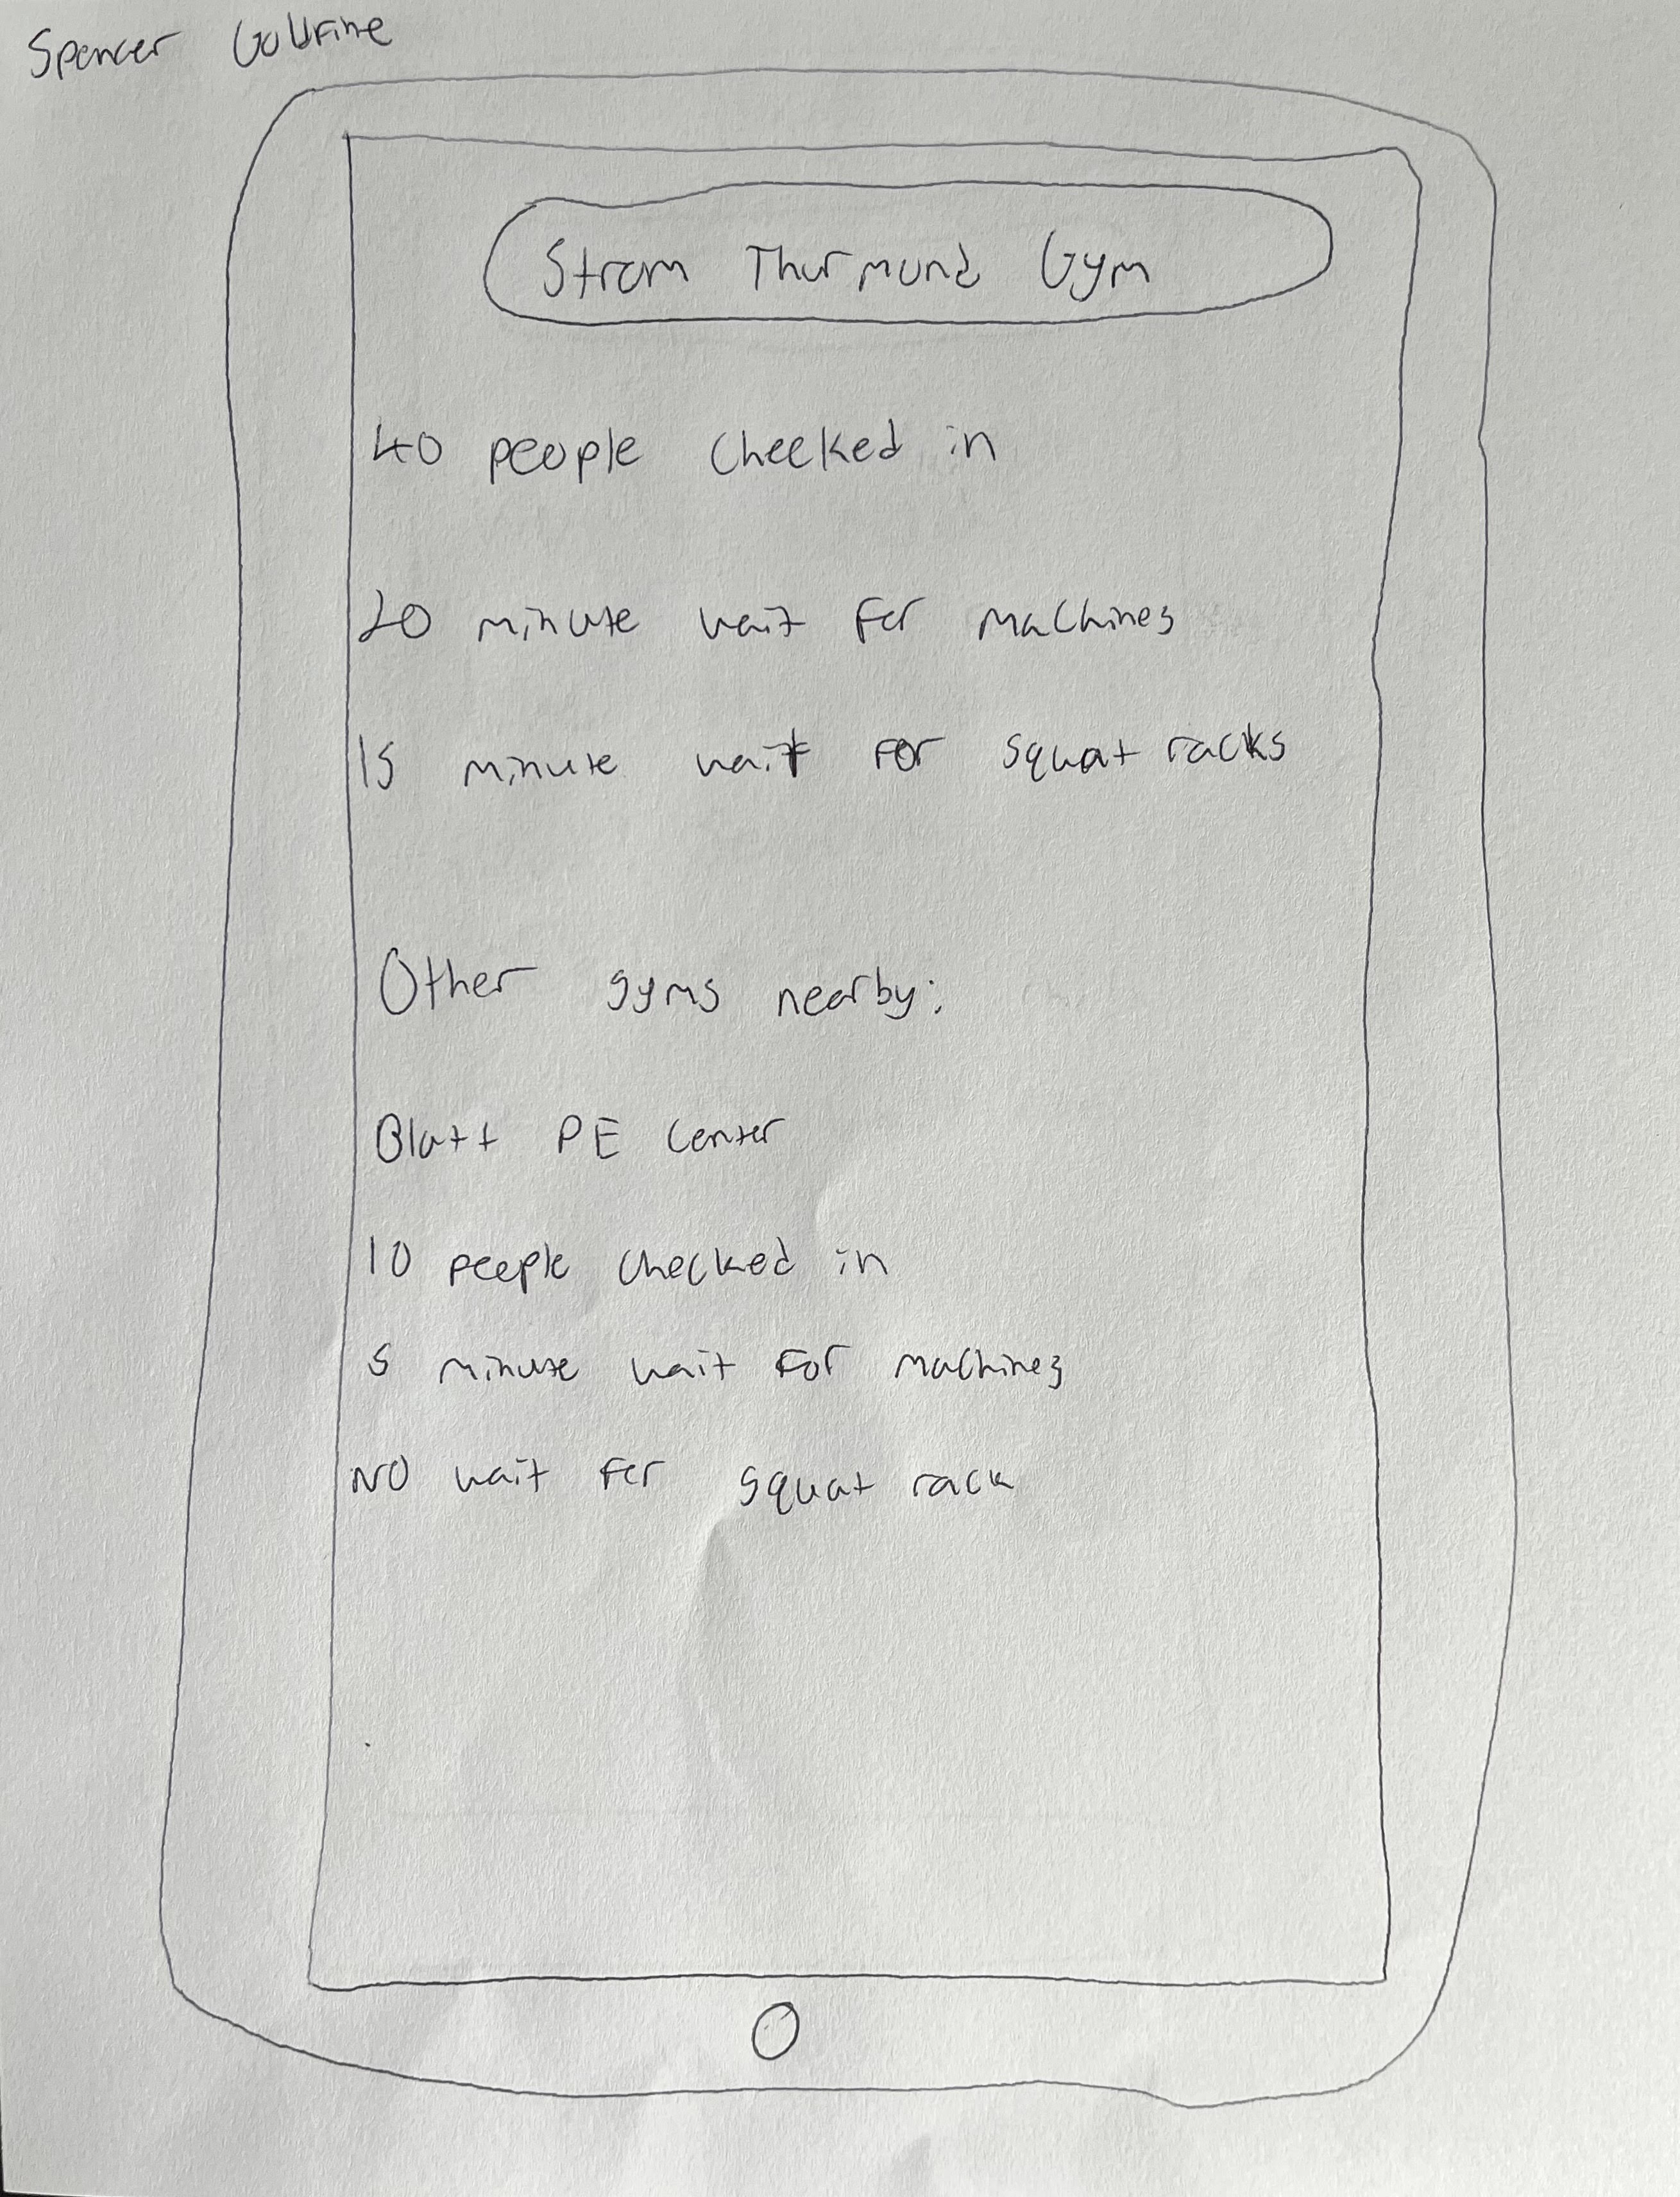 Spencer Goldfine
Strom Thurmond Gym
40 people checked in
20 minute wait for machines
15 minute wait for squat racks
Other gyms nearby:
Blatt PE Center
10 people checked in
5 minute wait for machines
NO wait for squat rack